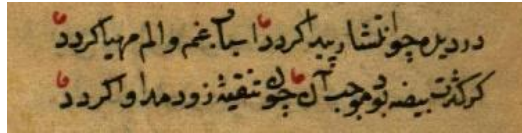 در دیده چو انتشار پیدا کردد اسباب غم و الم مهیا کردد
کر کثرت بیضه بود موجب آن چون تنقیه زود مداوا کردد